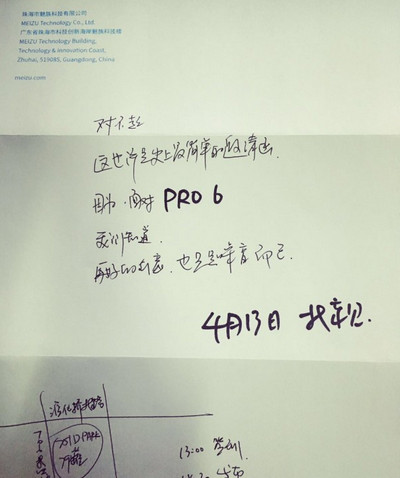 珠海市魅族科技有限公司
MEIZU Technology Co., Ltd.
广东省珠海市科技创新海岸魅族科技楼
MEIZU Technology Building,
Technology & Innovation Coast,
Zhuhai, 519085, Guangdong, China
meizu.com
对不起
这也许是史上最简单的邀请函.
因为.面对 PRO 6
我们知道.
再好的创意,也只是噪音而已.
4月13日 北京见.
13:00 签到